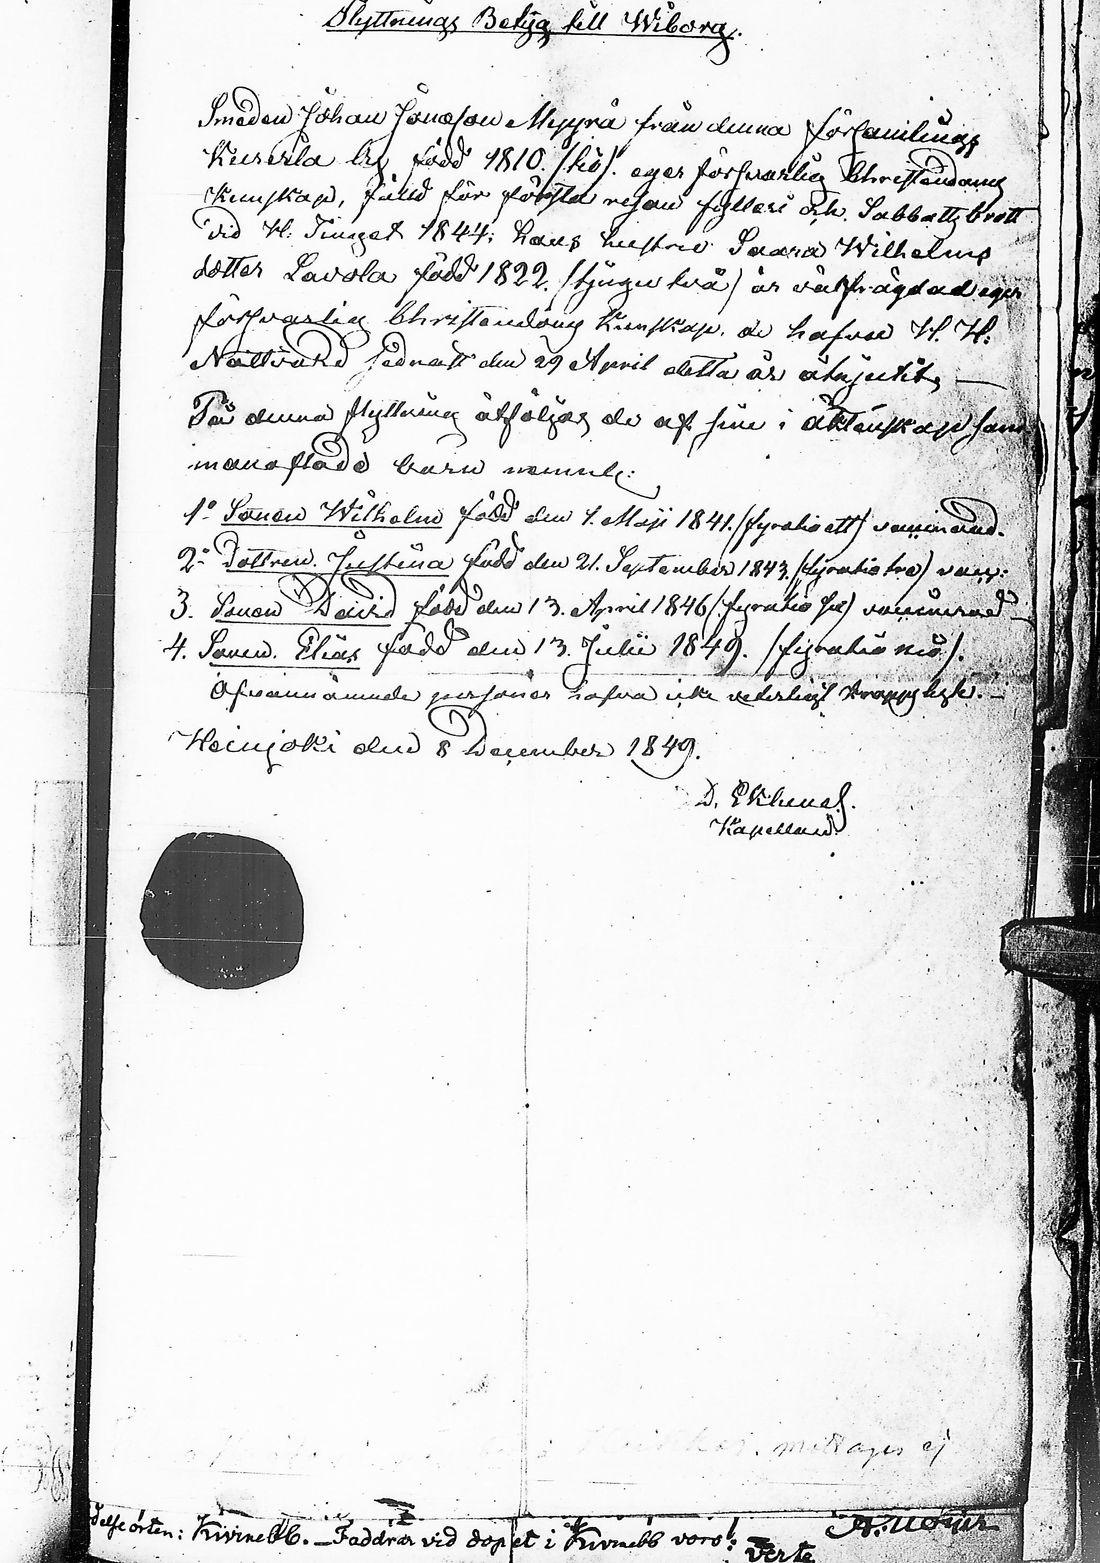 Flyttnings Betyg till Wiborg.
Smeden Johan Jönsson Myyrä från denna församlings
by född 1810. /tio/. eger försvarlig Christendoms
Kunskap, fälld för första resan fylleri och Sabbatsbrott
vid H. Tinget 1844; hans hustru Saara Wilhelms
dotter Lavola född 1822. /tjugutvå/ är välfrägdad eger
försvarlig Christendoms Kunskap. de hafva H. H:
Nattvard sednast den 29 April detta år åtnjutit, —
På denna flyttning åtföljas de af sine i äktenskap sam
manaflade barn nemnl:
1o Sonen Wilhelm född den 1. Maji 1841. /fyratioett/ vaccinerad.
2o Dottren Justina född den 21. September 1843. /fyratiotre/ vacc:
3. Sonen David född den 13. April 1846 /fyratio sex/ vaccinerad
4. Sonen Elias född den 13. Julii 1849. /fyratio nio/.
Ofvannämnde personer hafva icke vederligt kroppslyte. —
Heinjoki den 8 December 1849.
D. Eklund.
Kapellan
mottages ej
delseorten: Kivinebb. — Faddrar vid dopet i Kivinebb voro:
Verte